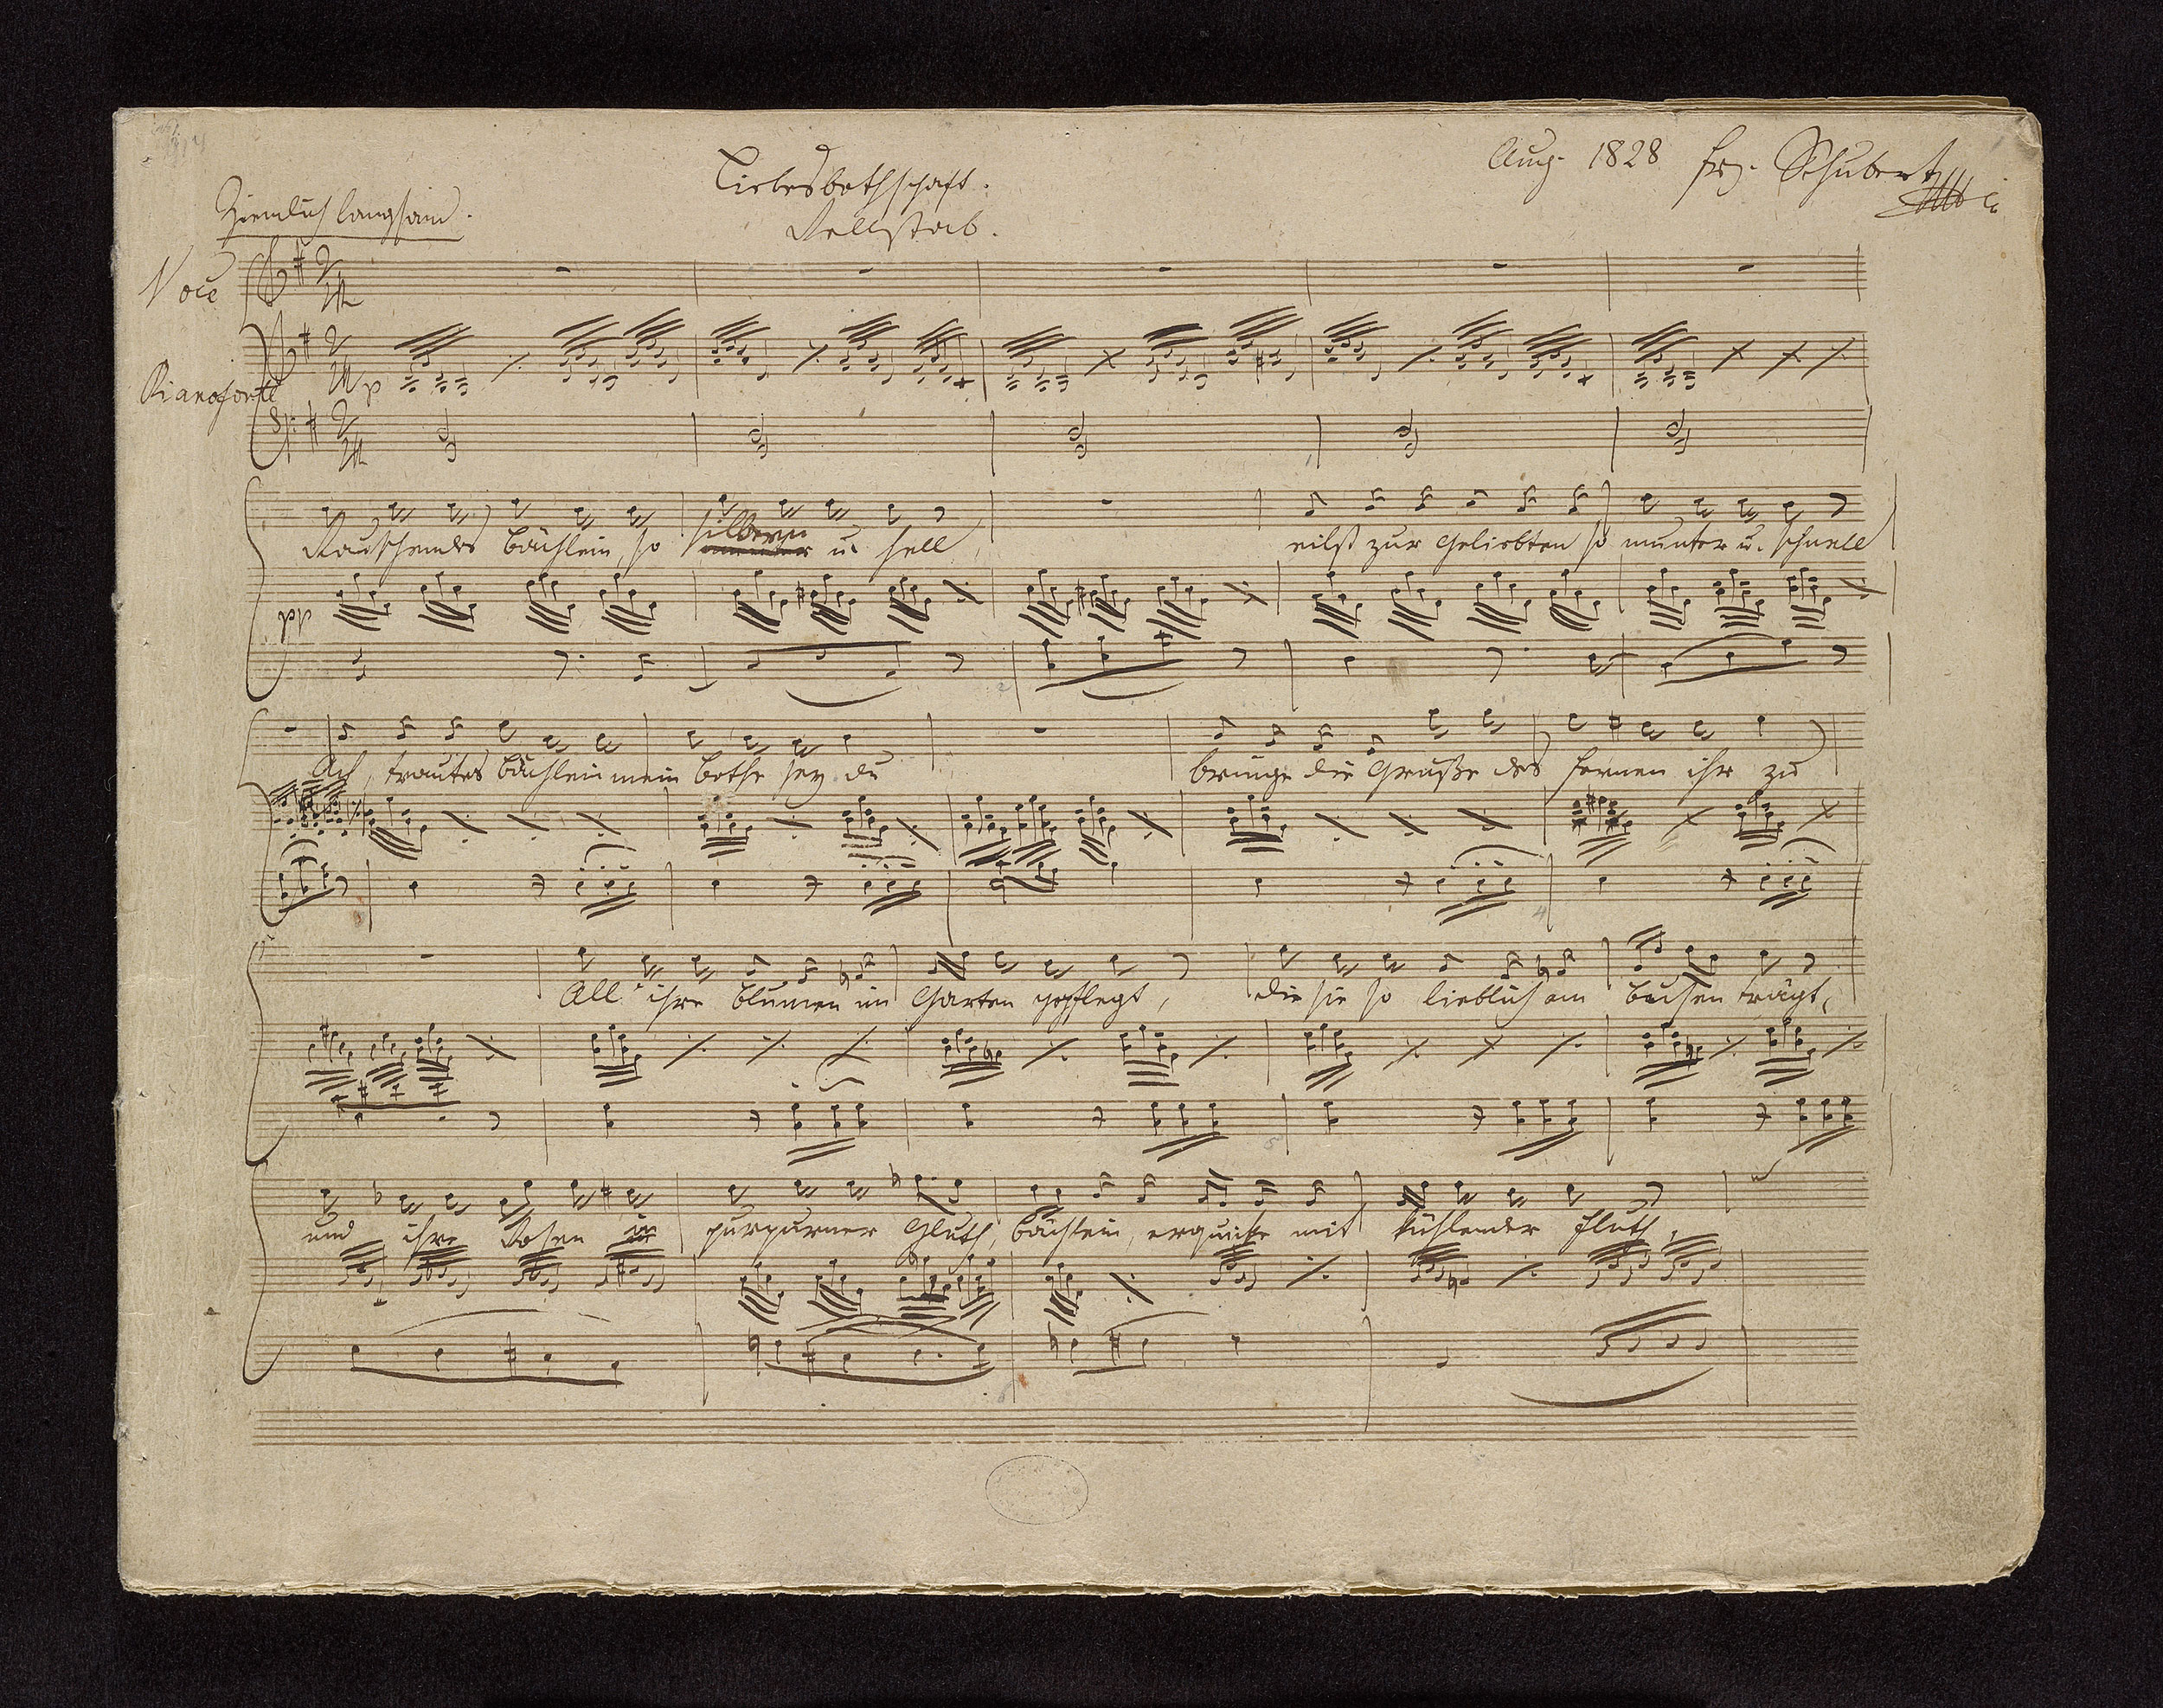 Aug. 1828 frz. Schubert
Liebesbothschaft.
Rellstab.
Ziemlich langsam.
Voce
Pianoforte
p
Rauschendes Bächlein, so silbern u. hell, eilst zur Geliebten so munter u. schnell
pp
Ach, trautes Bächlein mein Bothe sey du bringe die Grüße des Fernen ihr zu
All' ihre Blumen im Garten gepflegt, die sie so lieblich am Busen trägt,
und ihre Rosen in purpurner Gluth, Bächlein, erquicke mit kühlender Fluth,